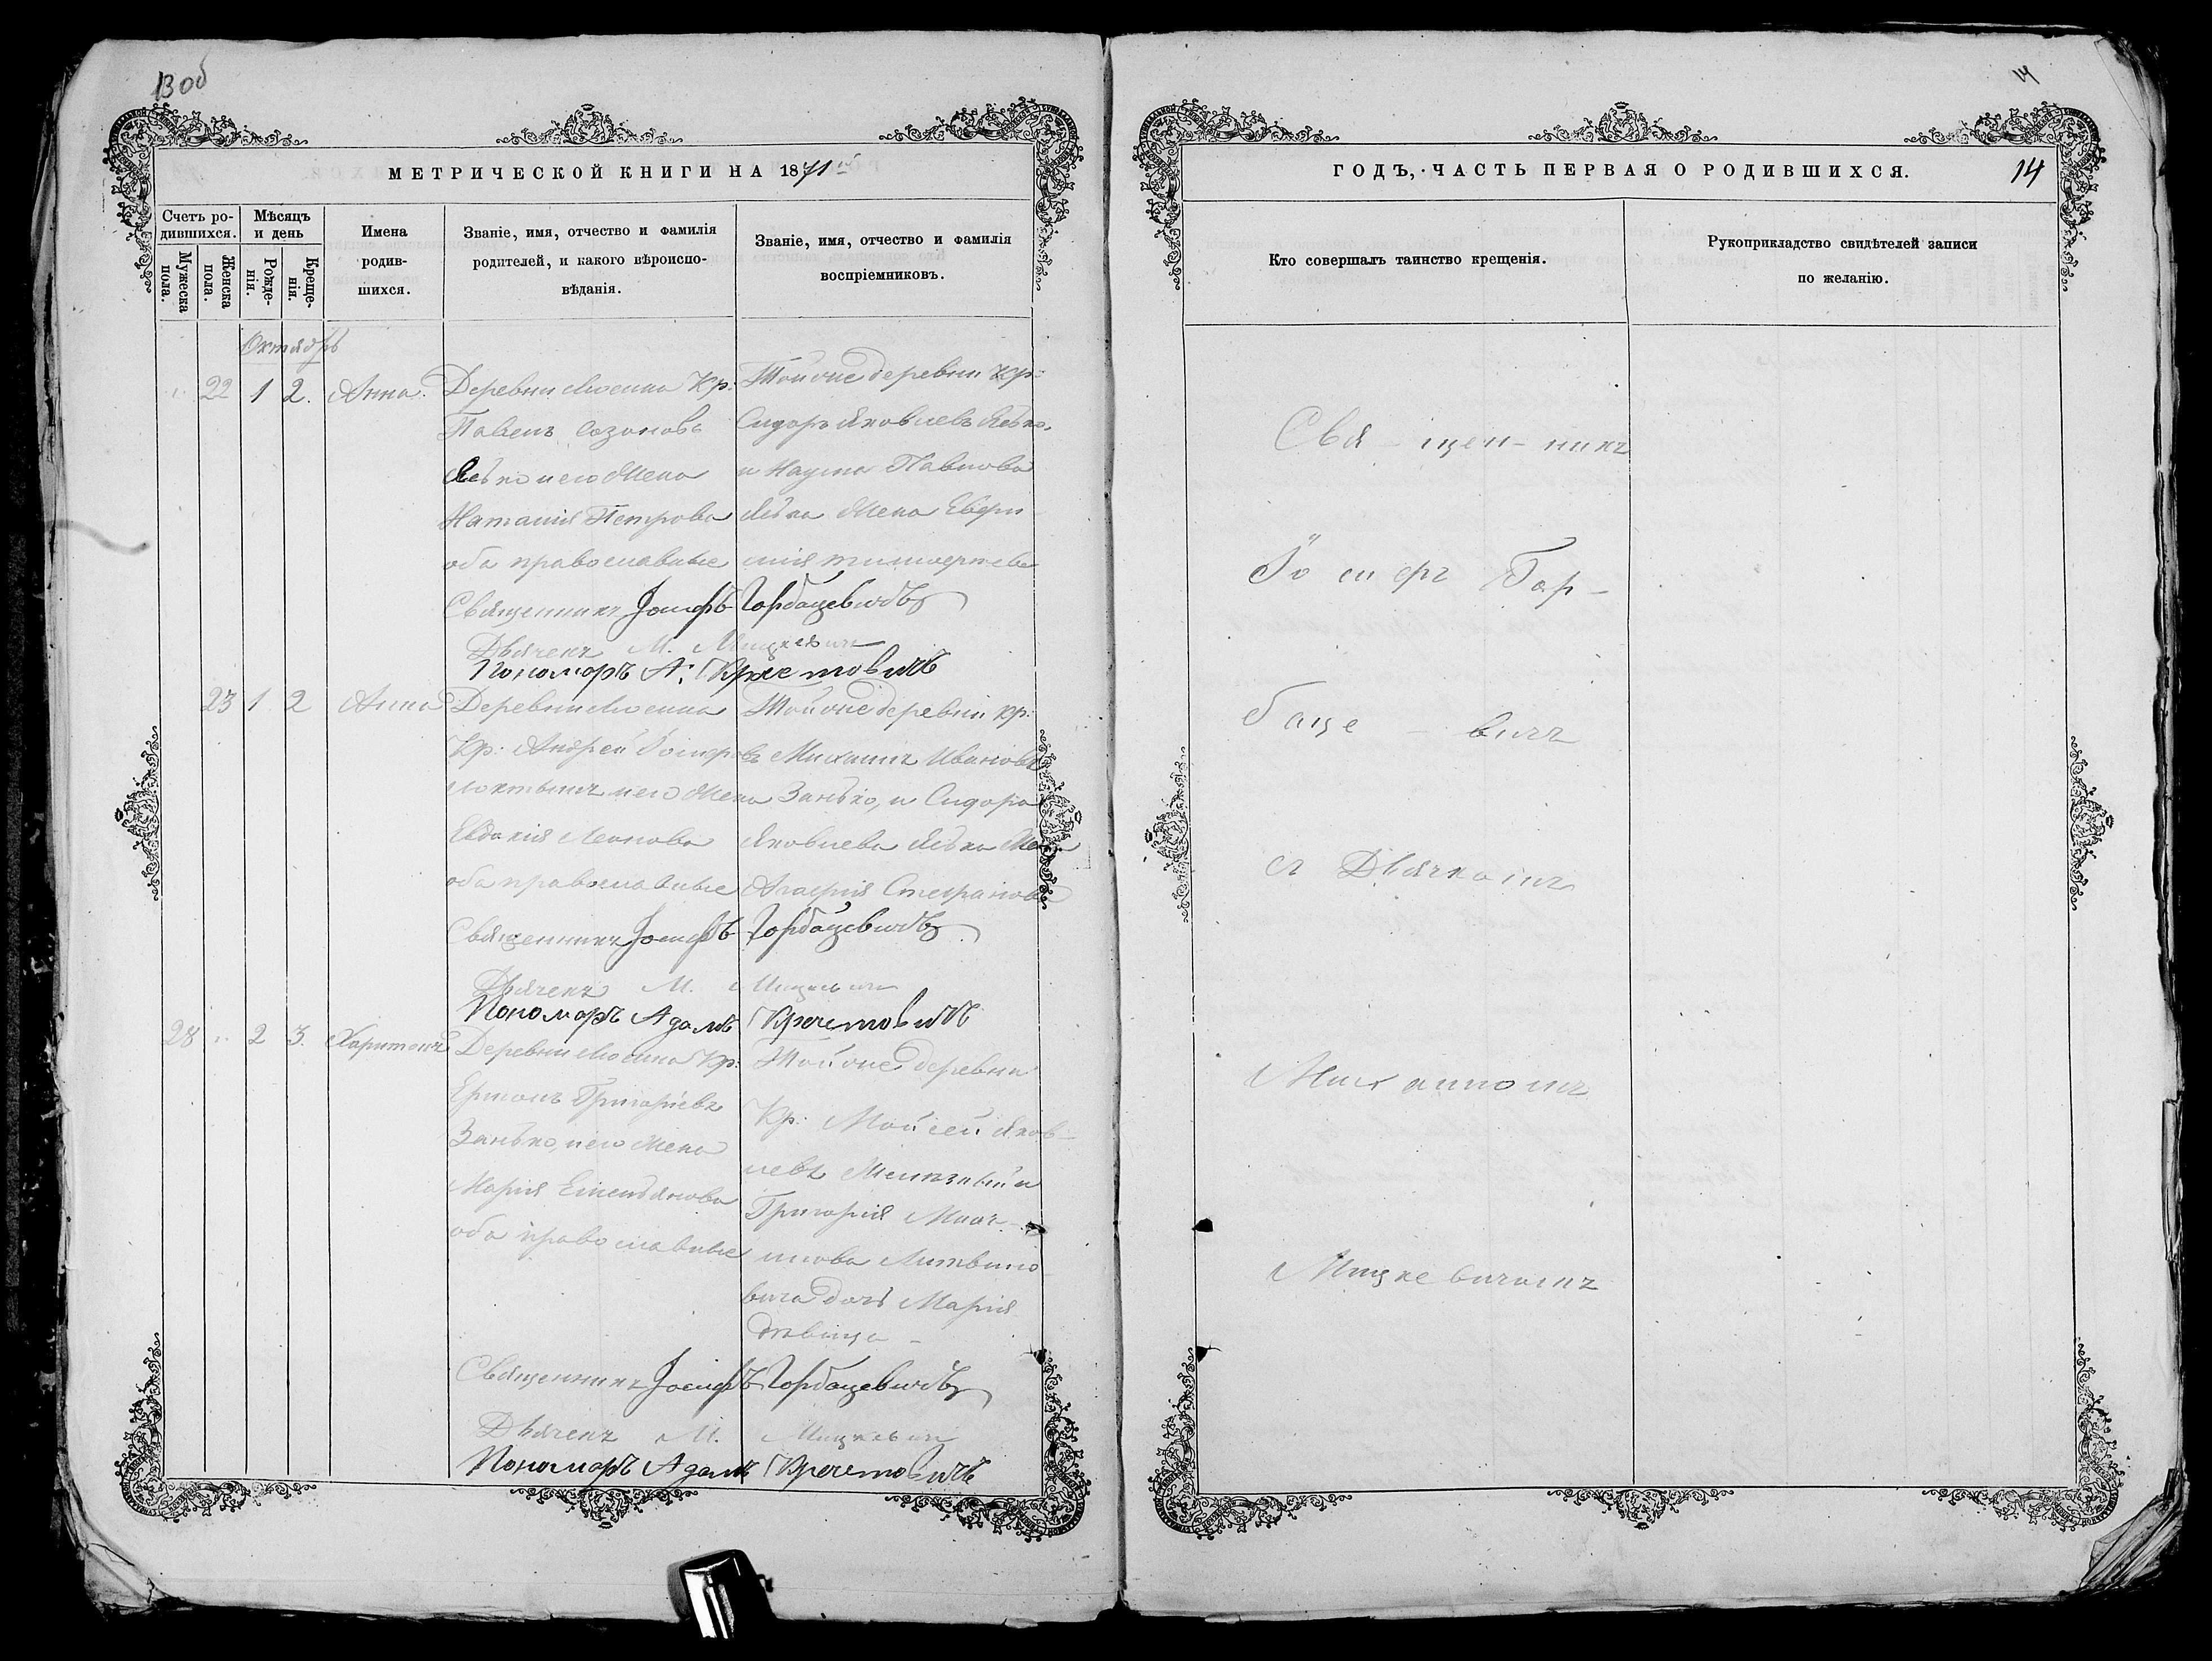 13 об
МЕТРИЧЕСКОЙ КНИГИ НА 1871
Счетъ ро-
дившихся.
Мужеска
пола.
Женска
пола.
Мѣсяцъ
и день
Рожде-
нія.
Креще-
нія.
Имена
родив-
шихся.
Званіе, имя, отчество и фамилія
родителей, и какого вѣроиспо-
вѣданія.
Званіе, имя, отчество и фамилія
воспріемниковъ.
Октябрь
22 1 2. Анна.
Деревни Кр:
Павелъ Созоновъ
и его жена
Наталія Петрова
оба православные
Той же деревни кр:
Сидоръ Яковлевъ
и Наума Павлова
жена Евфи
мія
Священникъ Іосифъ Горбацевичъ
Дьячекъ М. Мицкевич
Пономарь А. Кречетовичъ
23 1 2 Анна
Деревни
Кр: Андрей
и его жена
Евдокія Леонова
оба православные
Той же деревни кр:
Михаилъ Ивановъ
Занько, и Сидора
Яковлева жена
Агафія Стефанова
Священникъ Іосифъ Горбацевичъ
Дьячекъ М. Мицкевич
Пономарь Адамъ Кречетовичъ
28 2 3. Харитонъ
Деревни Кр:
Григоріевъ
Занько, и его жена
Марія Емельянова
оба православные
Той же деревни
Кр: Мойсей Яков-
левъ и
Григорія
Литвино
вича дочь Марія
дѣвица
Священникъ Іосифъ Горбацевичъ
Дьячекъ М. Мицкевич
Пономарь Адамъ Кречетовичъ
14
ГОДЪ, ЧАСТЬ ПЕРВАЯ О РОДИВШИХСЯ.
14
Кто совершалъ таинство крещенія.
Рукоприкладство свидѣтелей записи
по желанію.
Свя-щен-никъ
Іосифъ Гор-
баце-вичъ
съ Дьячкомъ
Михаиломъ
Мицкевичомъ